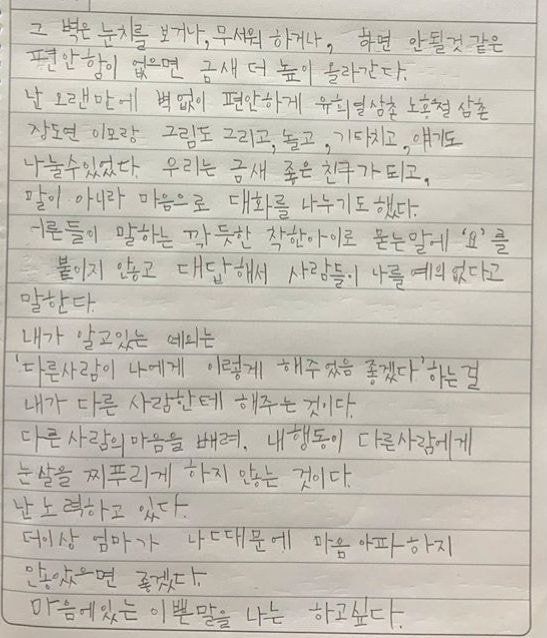 그 벽은 눈치를 보거나, 무서워 하거나, 하면 안될것 같은
편안함이 없으면 금새 더 높이 올라간다.
난 오랜만에 벽없이 편안하게 유희열삼촌 노홍철 삼촌
장도연 이모랑 그림도 그리고, 놀고, 기타치고, 얘기도
나눌수있었다. 우리는 금새 좋은친구가 되고,
말이 아니라 마음으로 대화를 나누기도했다.
어른들이 말하는 깍듯한 착한아이로 묻는말에 '요'를
붙이지 안놓고 대답해서 사람들이 나를 예의없다고
말한다.
내가 알고있는 예의는
'다른사람이 나에게 이렇게 해주었음 좋겠다'하는걸
내가 다른 사람한테 해주는것이다.
다른사람의마음을 배려. 내행동이 다른사람에게
눈살을 찌푸리게 하지 안놓는 것이다.
난노력하고 있다.
더이상 엄마가 나때문에 마음아파하지
안놓았으면 좋겠다.
마음에있는 이쁜말을 나는 하고싶다.